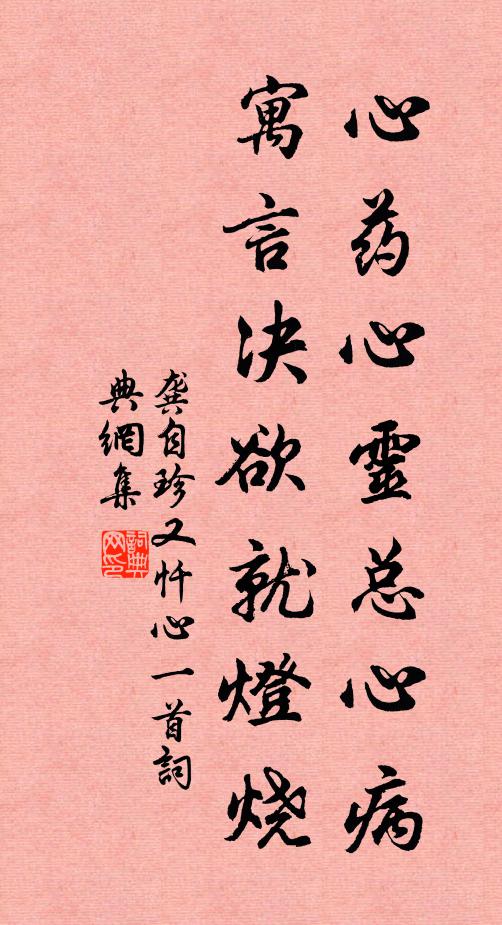 心药心靈总心病
寓言决欲就燈烧
龚自珍又忏心一首詞
典網集
詞典
网印